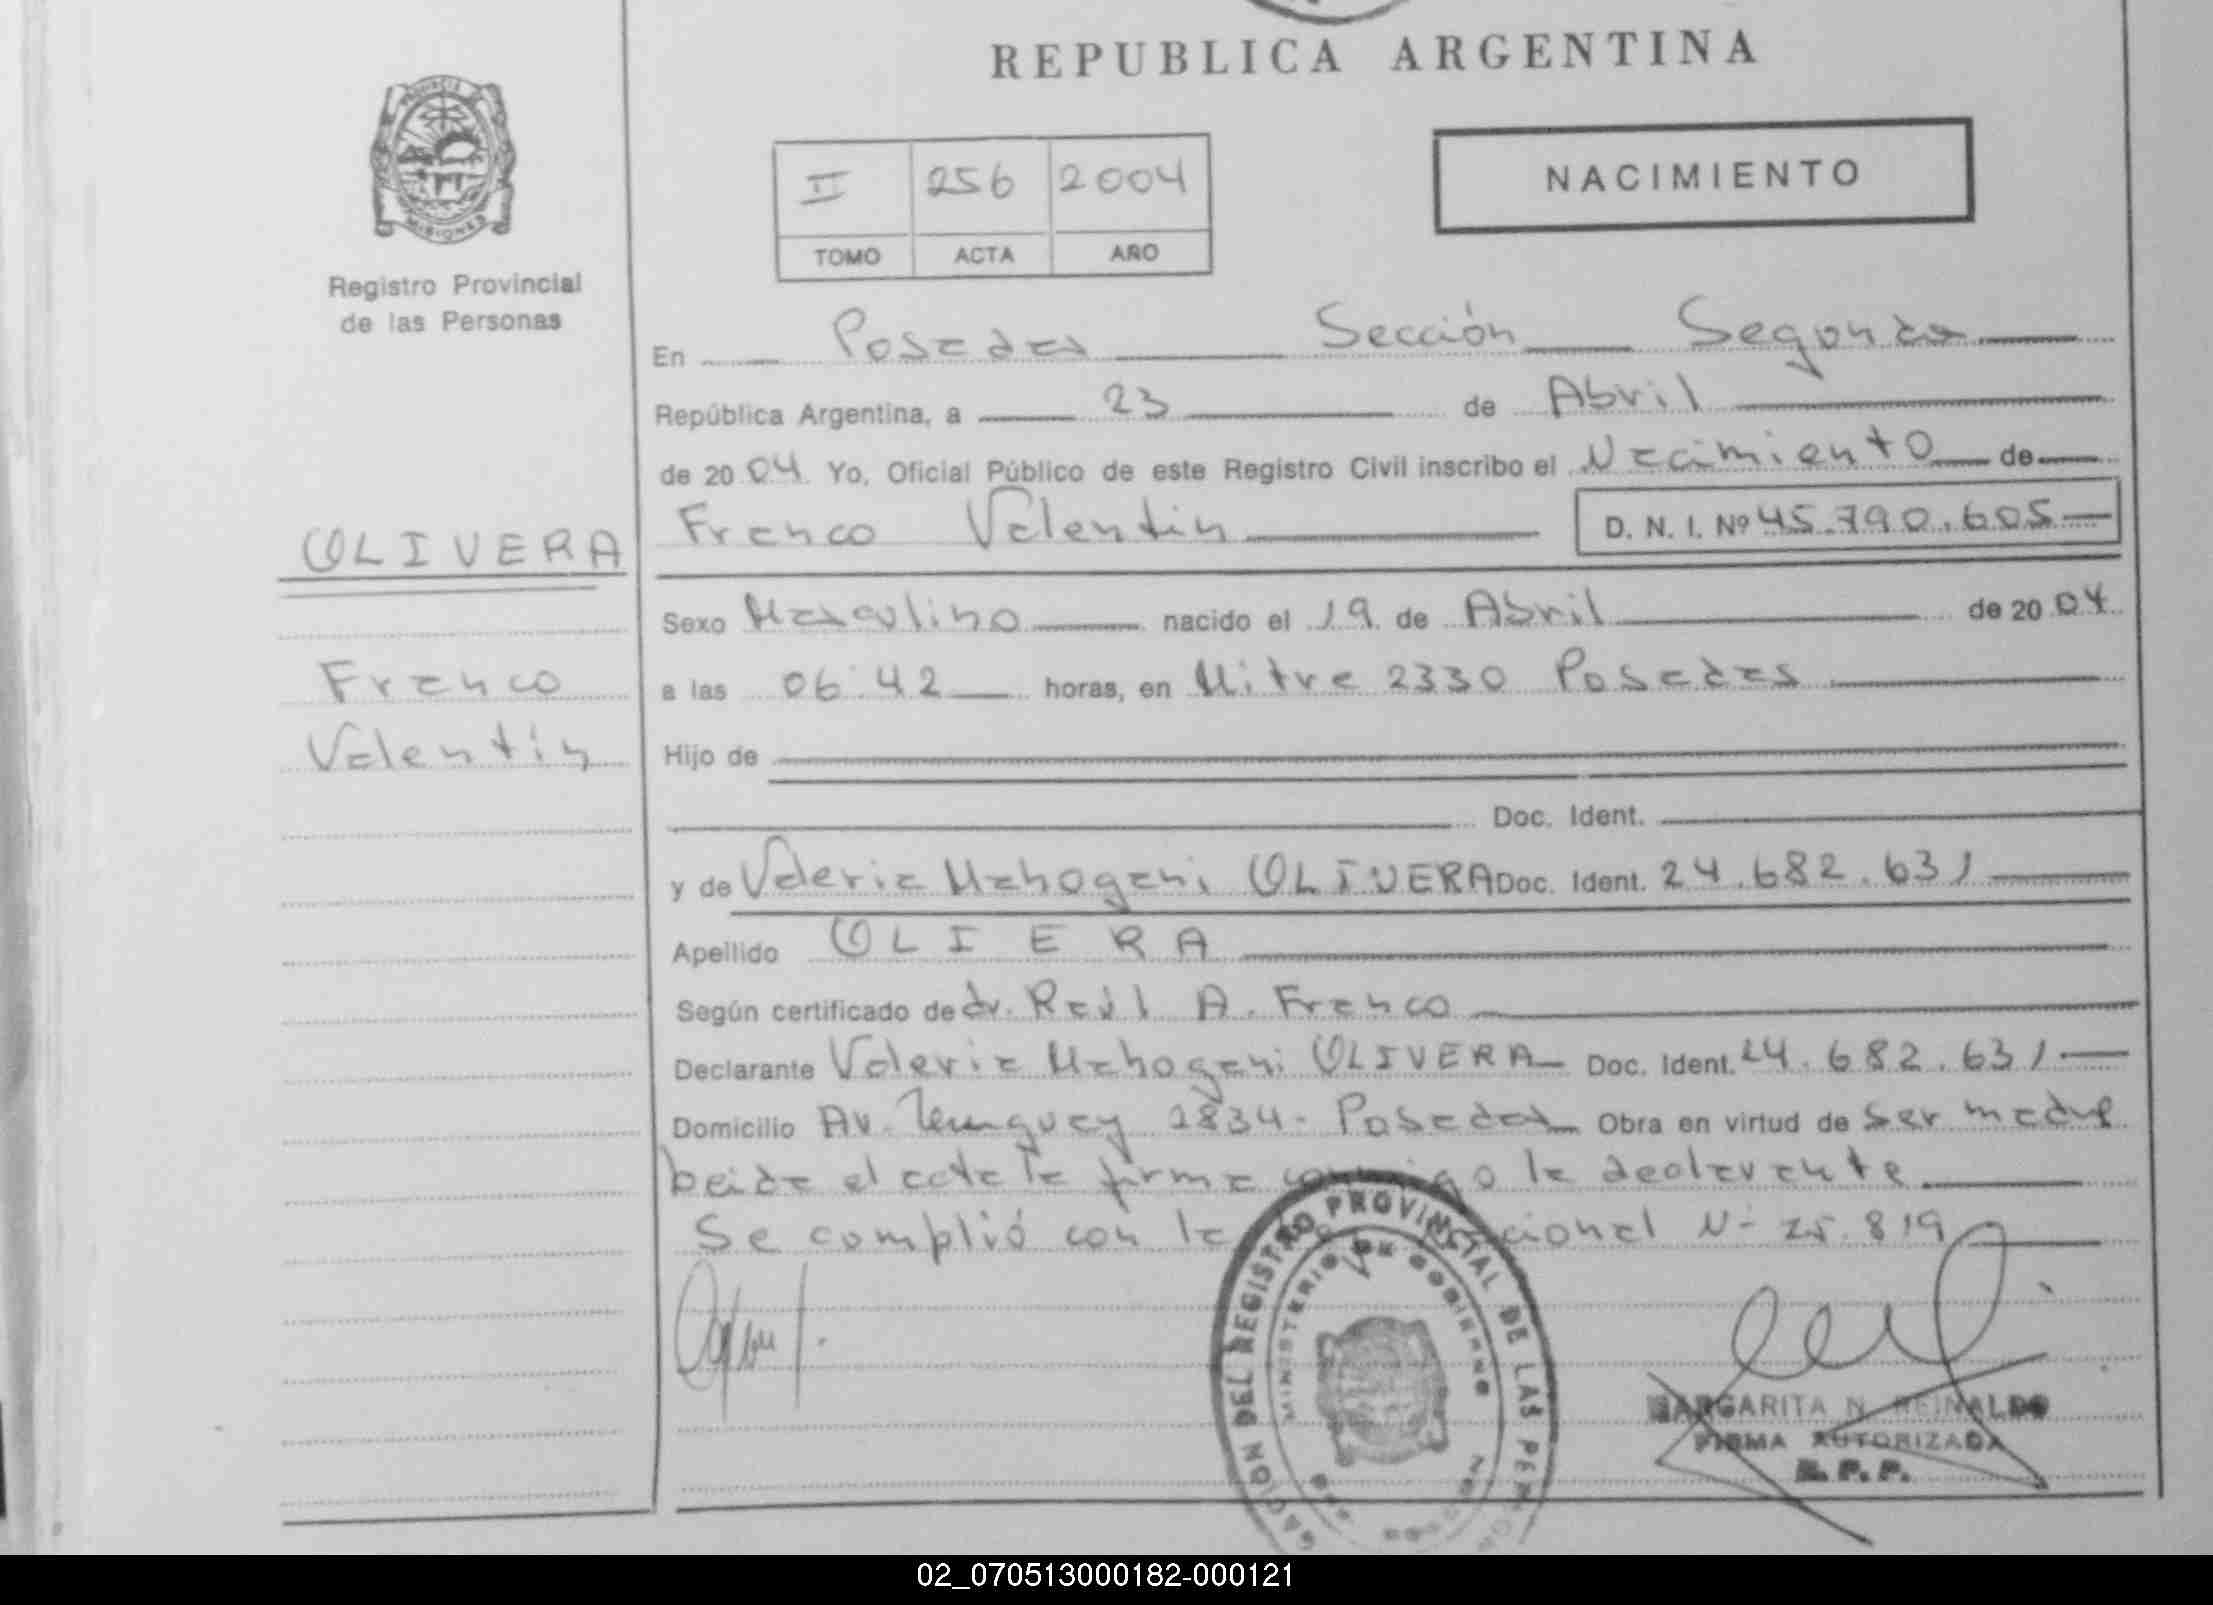 REPUBLICA ARGENTINA
PROVINCIA DE
MISIONES
Registro Provincial
de las Personas
II 256 2004
TOMO ACTA AÑO
NACIMIENTO
En Posadas Sección Segunda
República Argentina, a 23 de Abril
de 20 04 Yo, Oficial Público de este Registro Civil inscribo el Nacimiento de
OLIVERA
Franco Valentin D. N. I. Nº 45.790.605
Sexo Masculino nacido el 19 de Abril de 20 04
Franco
Valentin
a las 06:42 horas, en Mitre 2330 Posadas
Hijo de
Doc. Ident.
y de Valeria Mahogani OLIVERA Doc. Ident. 24.682.631
Apellido OLI ERA
Según certificado de dr. Raúl A. Franco
Declarante Valeria Mahogani OLIVERA Doc. Ident. 24.682.631
Domicilio Av. 2834 - Posadas Obra en virtud de ser madre
el acta la firma la declarante
Se complió con la N- 25.819
DEL REGISTRO PROVINCIAL DE LAS
MINISTERIO DE GOBIERNO
MARGARITA N. REINALDO
FIRMA AUTORIZADA
R. P. P.
02_070513000182-000121